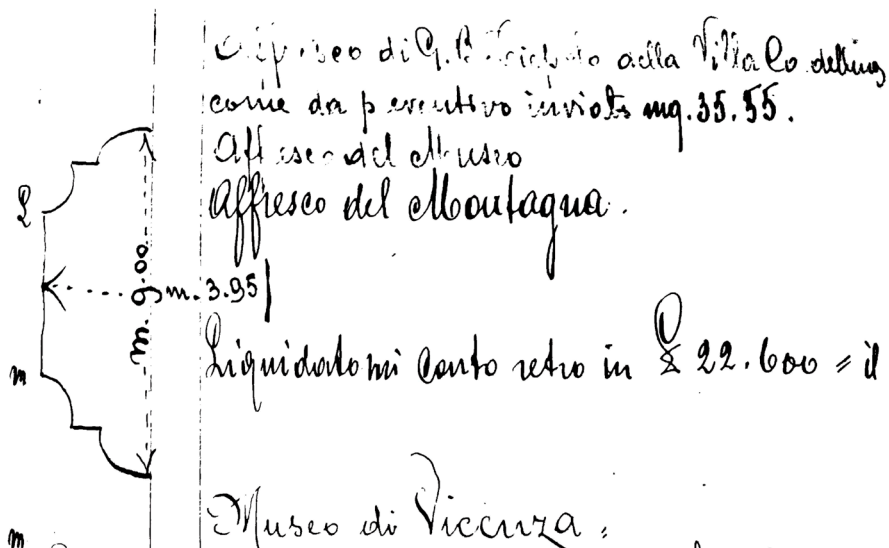 di G. B. della Villa Cordellina
come da preventivo inviato mq. 35.55.
Affresco del Museo
Affresco del Montagna.
L
m. 9.00
m. 3.95
Liquidatomi Conto retro in £ 22.600 = il
m
Museo di Vicenza =
m